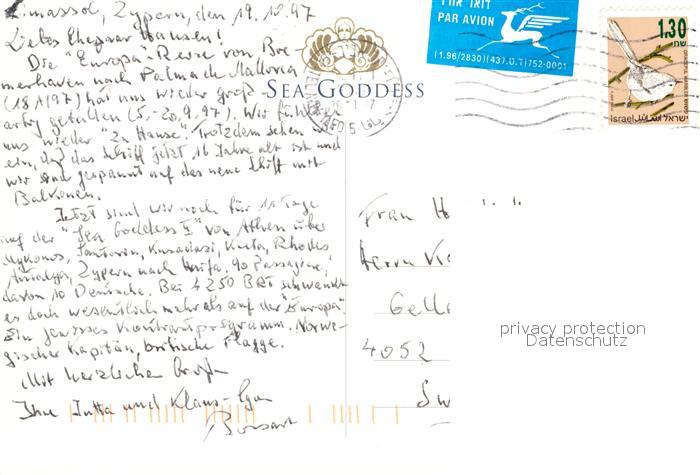 Limassol, Zypern, den 19.10.97
Liebes Ehepaar Hansen!
Die "Europa-Reise von Bre
merhaven nach Palma de Mallorca
(18 A/97) hat uns wieder groß-
artig gefallen (5.-20.9.97). Wir fühlten
uns wieder "zu Hause". Trotzdem sehen wir
ein, daß das Schiff jetzt 16 Jahre alt ist und
wir sind gespannt auf das neue Schiff mit
Balkonen.
Jetzt sind wir noch für 11 Tage
auf der "Sea Goddess II" von Athen über
Mykonos, Santorin, Kusadasi, Rhodos,
Antalya, Zypern nach Haifa. 90 Passagiere,
davon 10 Deutsche. Bei 4250 BRT schwankt
es doch wesentlich mehr als auf der "Europa".
Ein gewisses Kontrastprogramm. Norwe-
gischer Kapitän, britische Flagge.
Mit herzlichen Grüßen
Ihre Jutta und Klaus-Egon
SEA GODDESS
דואר אויר
PAR AVION
(1.96/2830)(43).O.T)752-0001
1.30
Israel ישראל
Frau H
Herrn
Gelle
4052
Sw
privacy protection
Datenschutz